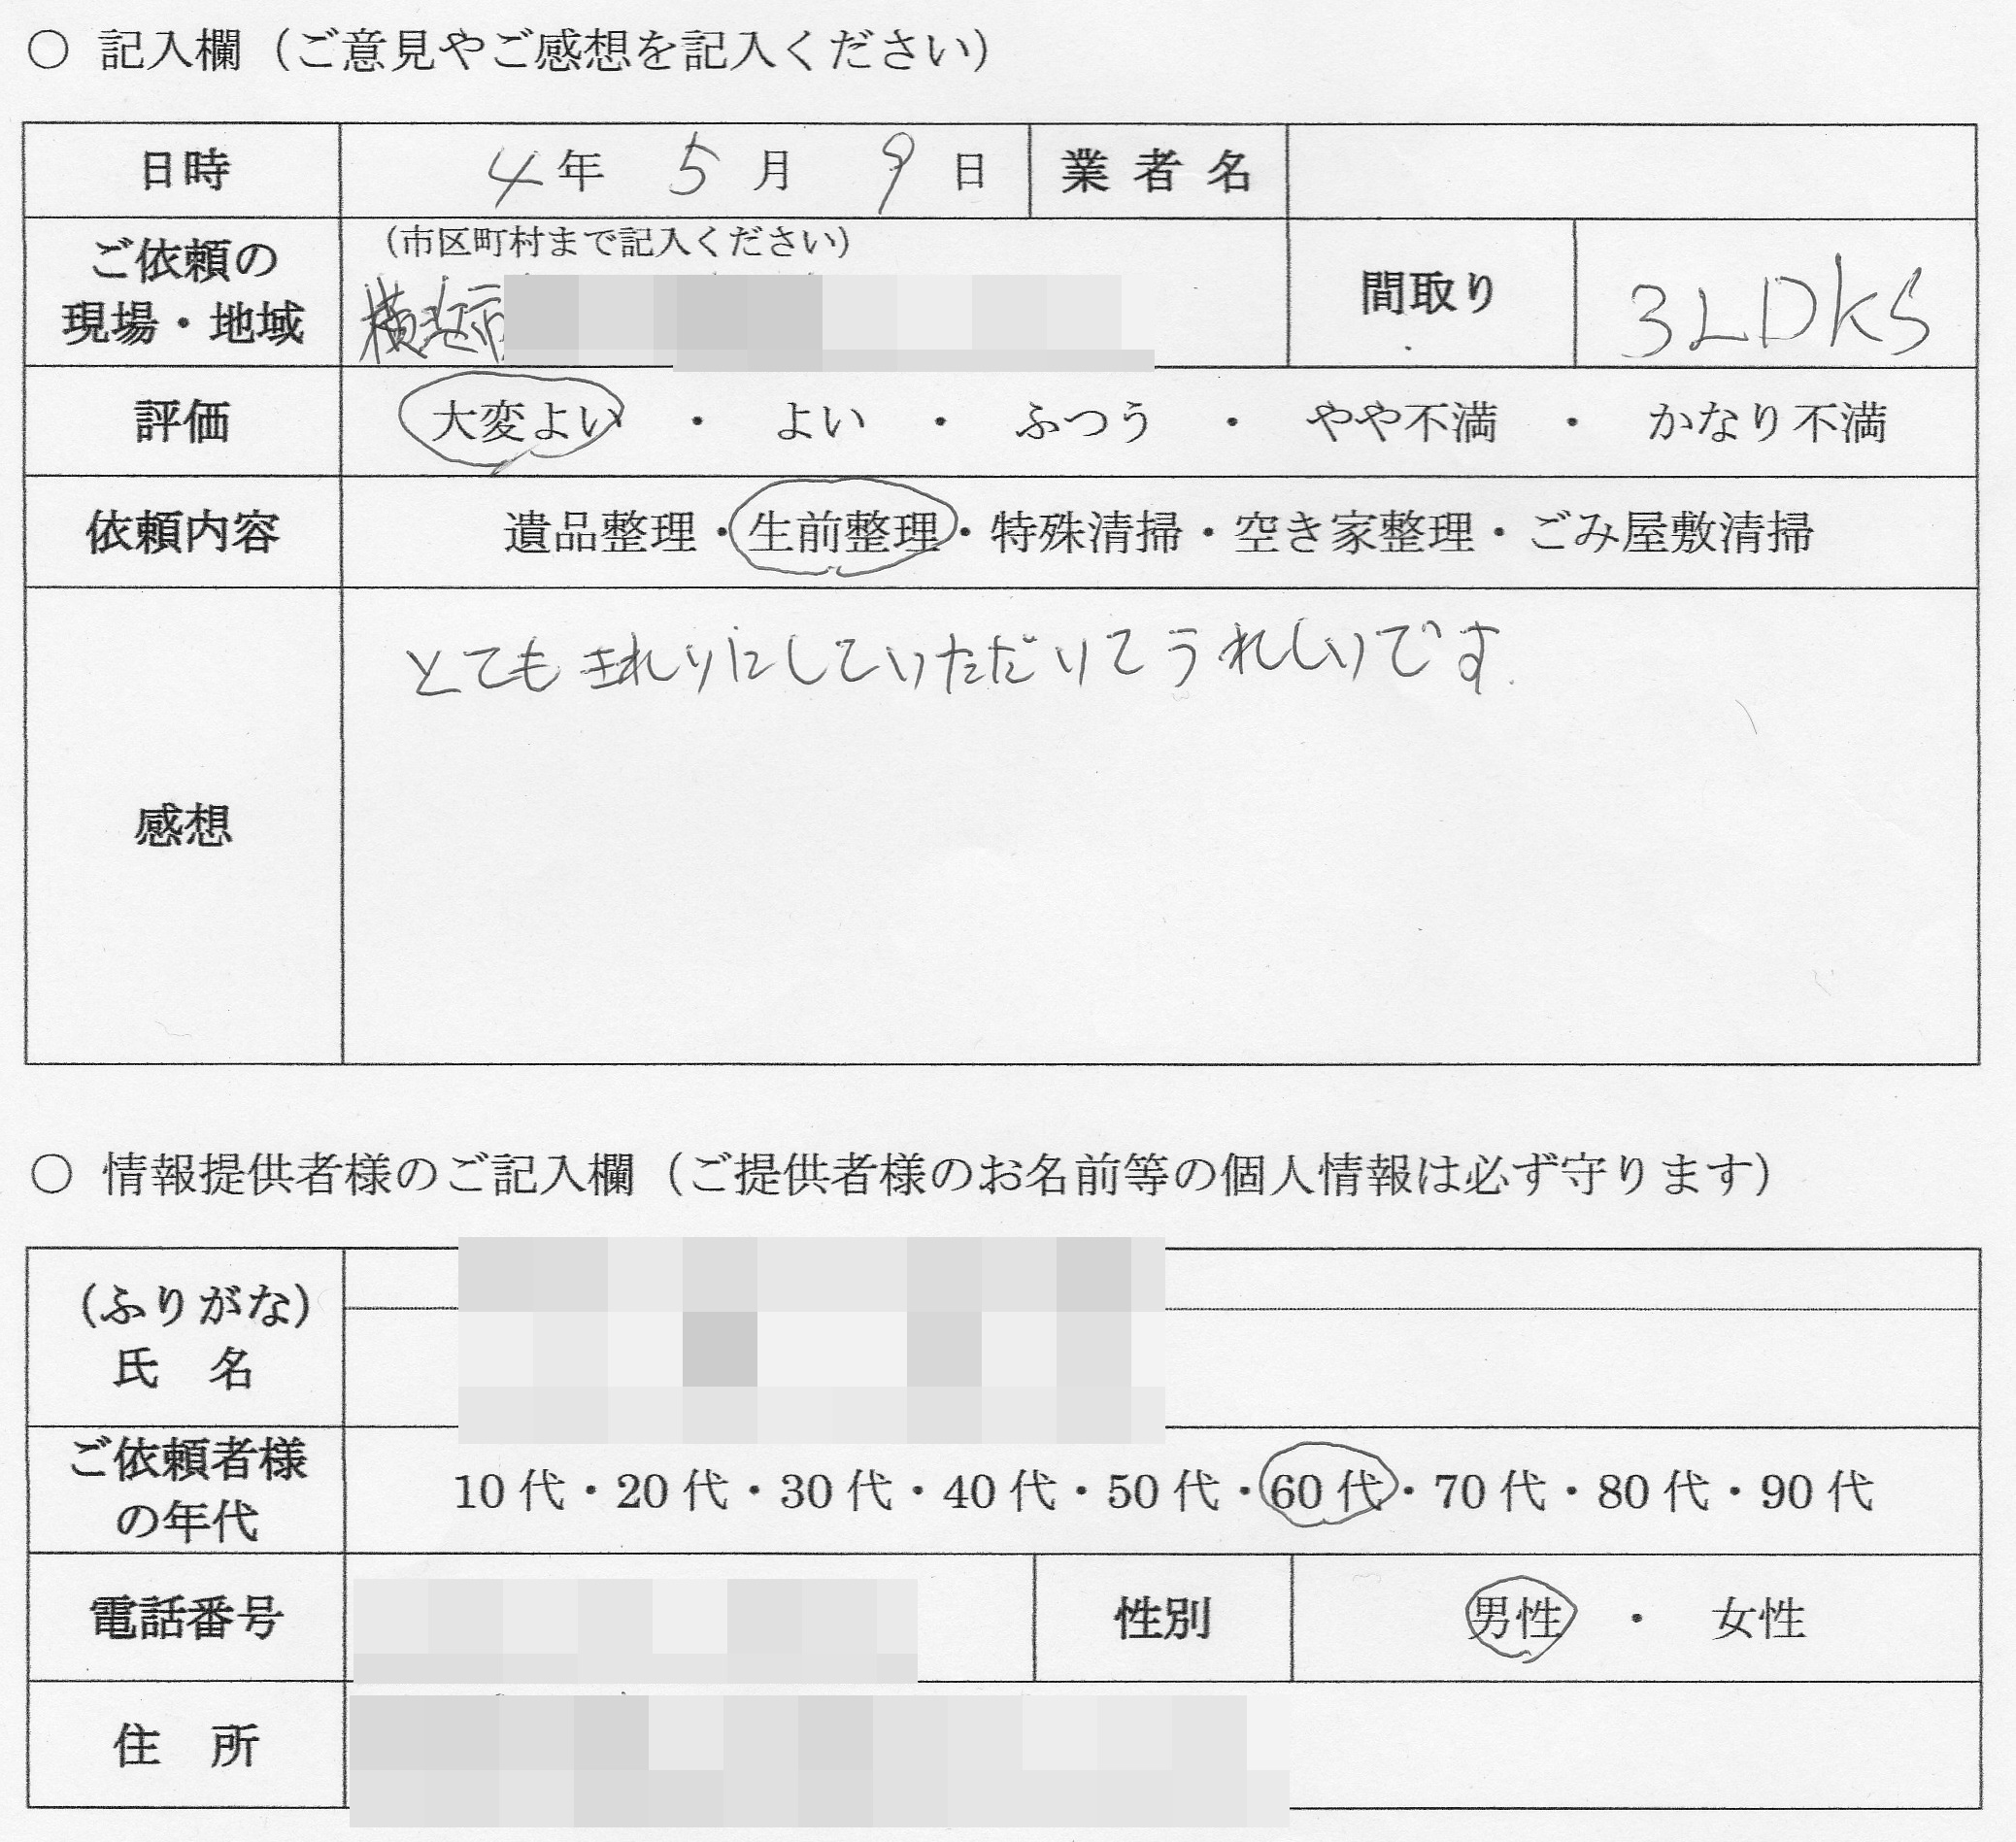 ○ 記入欄（ご意見やご感想を記入ください）
日時 4年 5月 9日 業者名
ご依頼の現場・地域 （市区町村まで記入ください）
横浜市
間取り 3LDKS
評価 大変よい ・ よい ・ ふつう ・ やや不満 ・ かなり不満
依頼内容 遺品整理・生前整理・特殊清掃・空き家整理・ごみ屋敷清掃
感想 とてもきれいにしていただいてうれしいです.
○ 情報提供者様のご記入欄（ご提供者様のお名前等の個人情報は必ず守ります）
（ふりがな）
氏 名
ご依頼者様の年代 10代・20代・30代・40代・50代・60代・70代・80代・90代
電話番号 性別 男性 ・ 女性
住 所